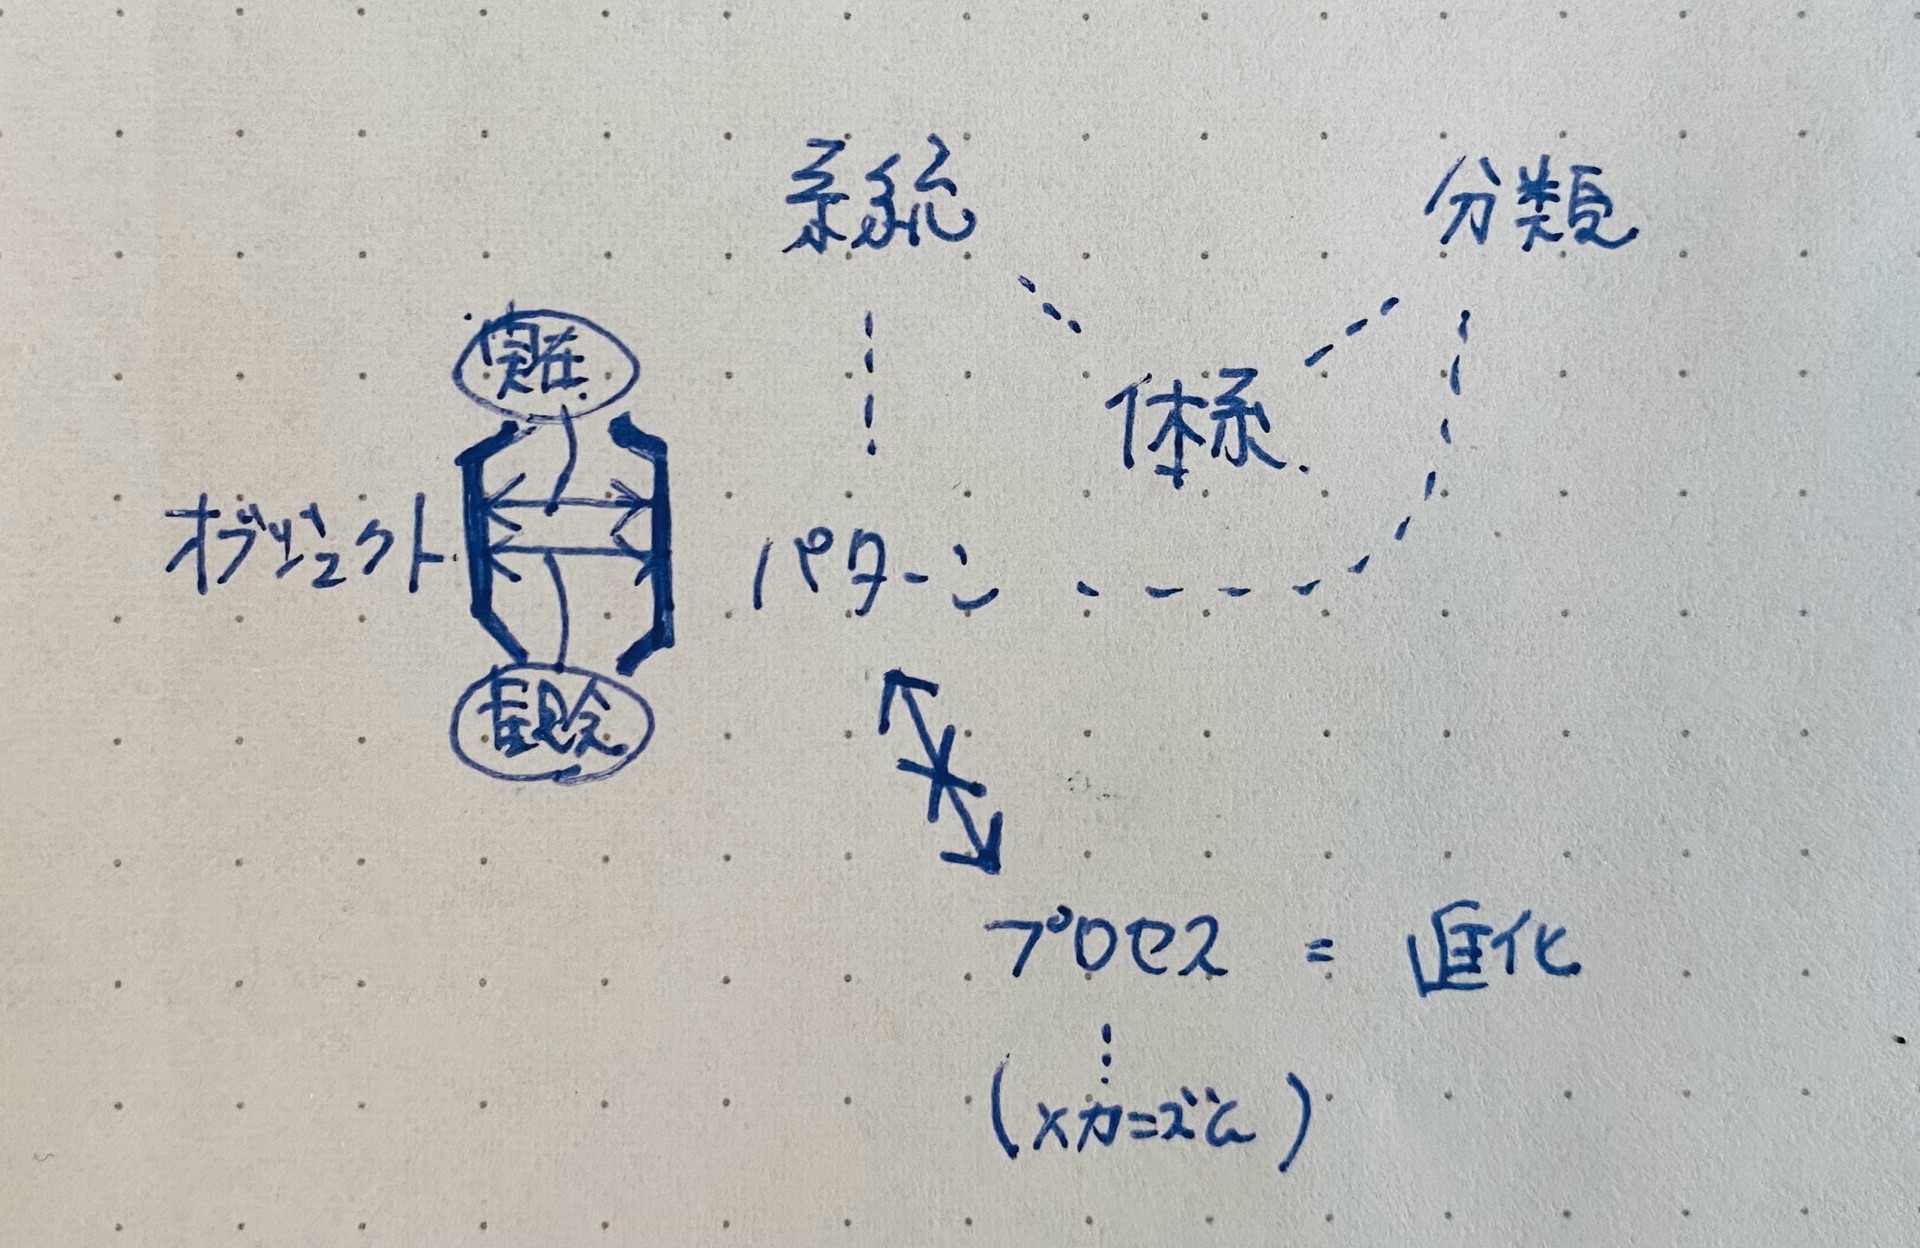 系統
分類
実在
体系
オブジェクト
パターン
観念
プロセス = 進化
(メカニズム)